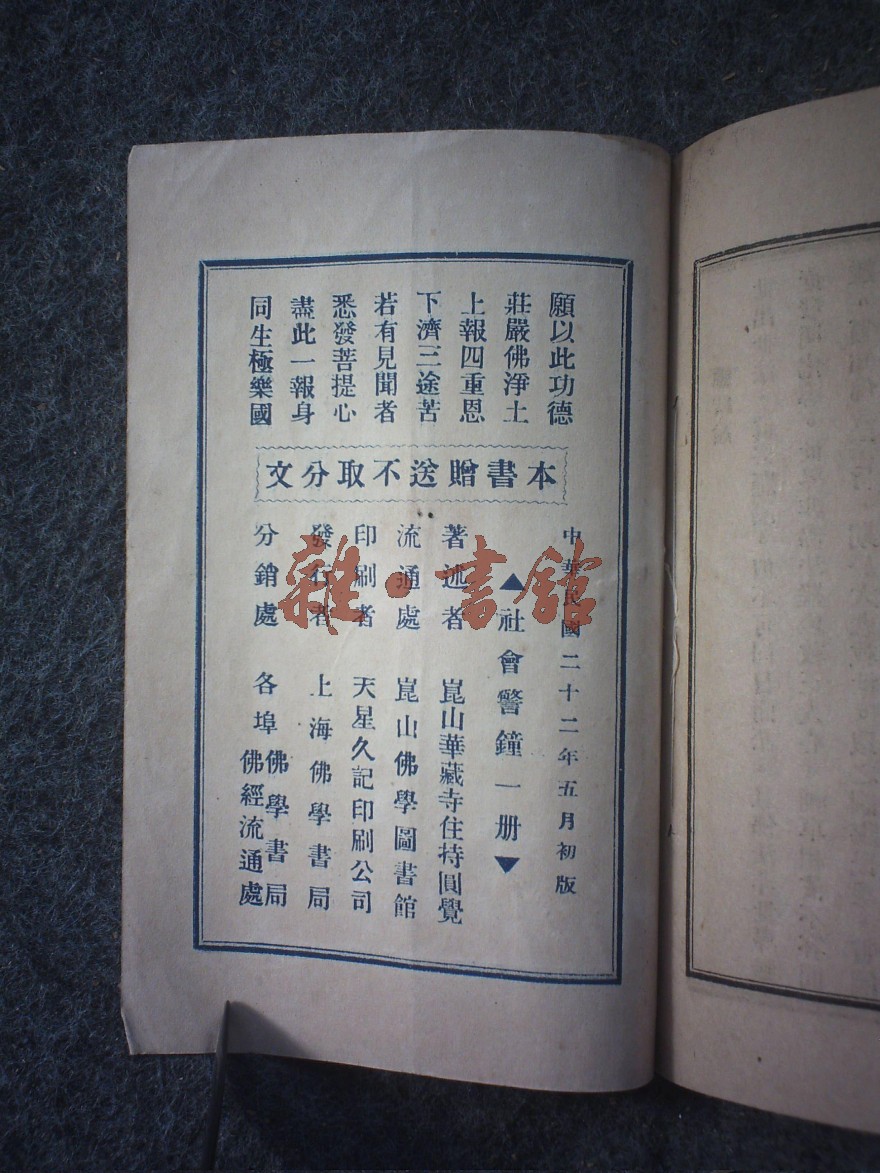 願以此功德
莊嚴佛淨土
上報四重恩
下濟三途苦
若有見聞者
悉發菩提心
盡此一報身
同生極樂國
本書贈送不取分文
中華民國二十二年五月初版
▲社會警鐘一册▼
著述者 崑山華藏寺住持圓覺
流通處 崑山佛學圖書館
印刷者 天星久記印刷公司
發行者 上海佛學書局
分銷處 各埠佛學書局
佛經流通處
雜·書館